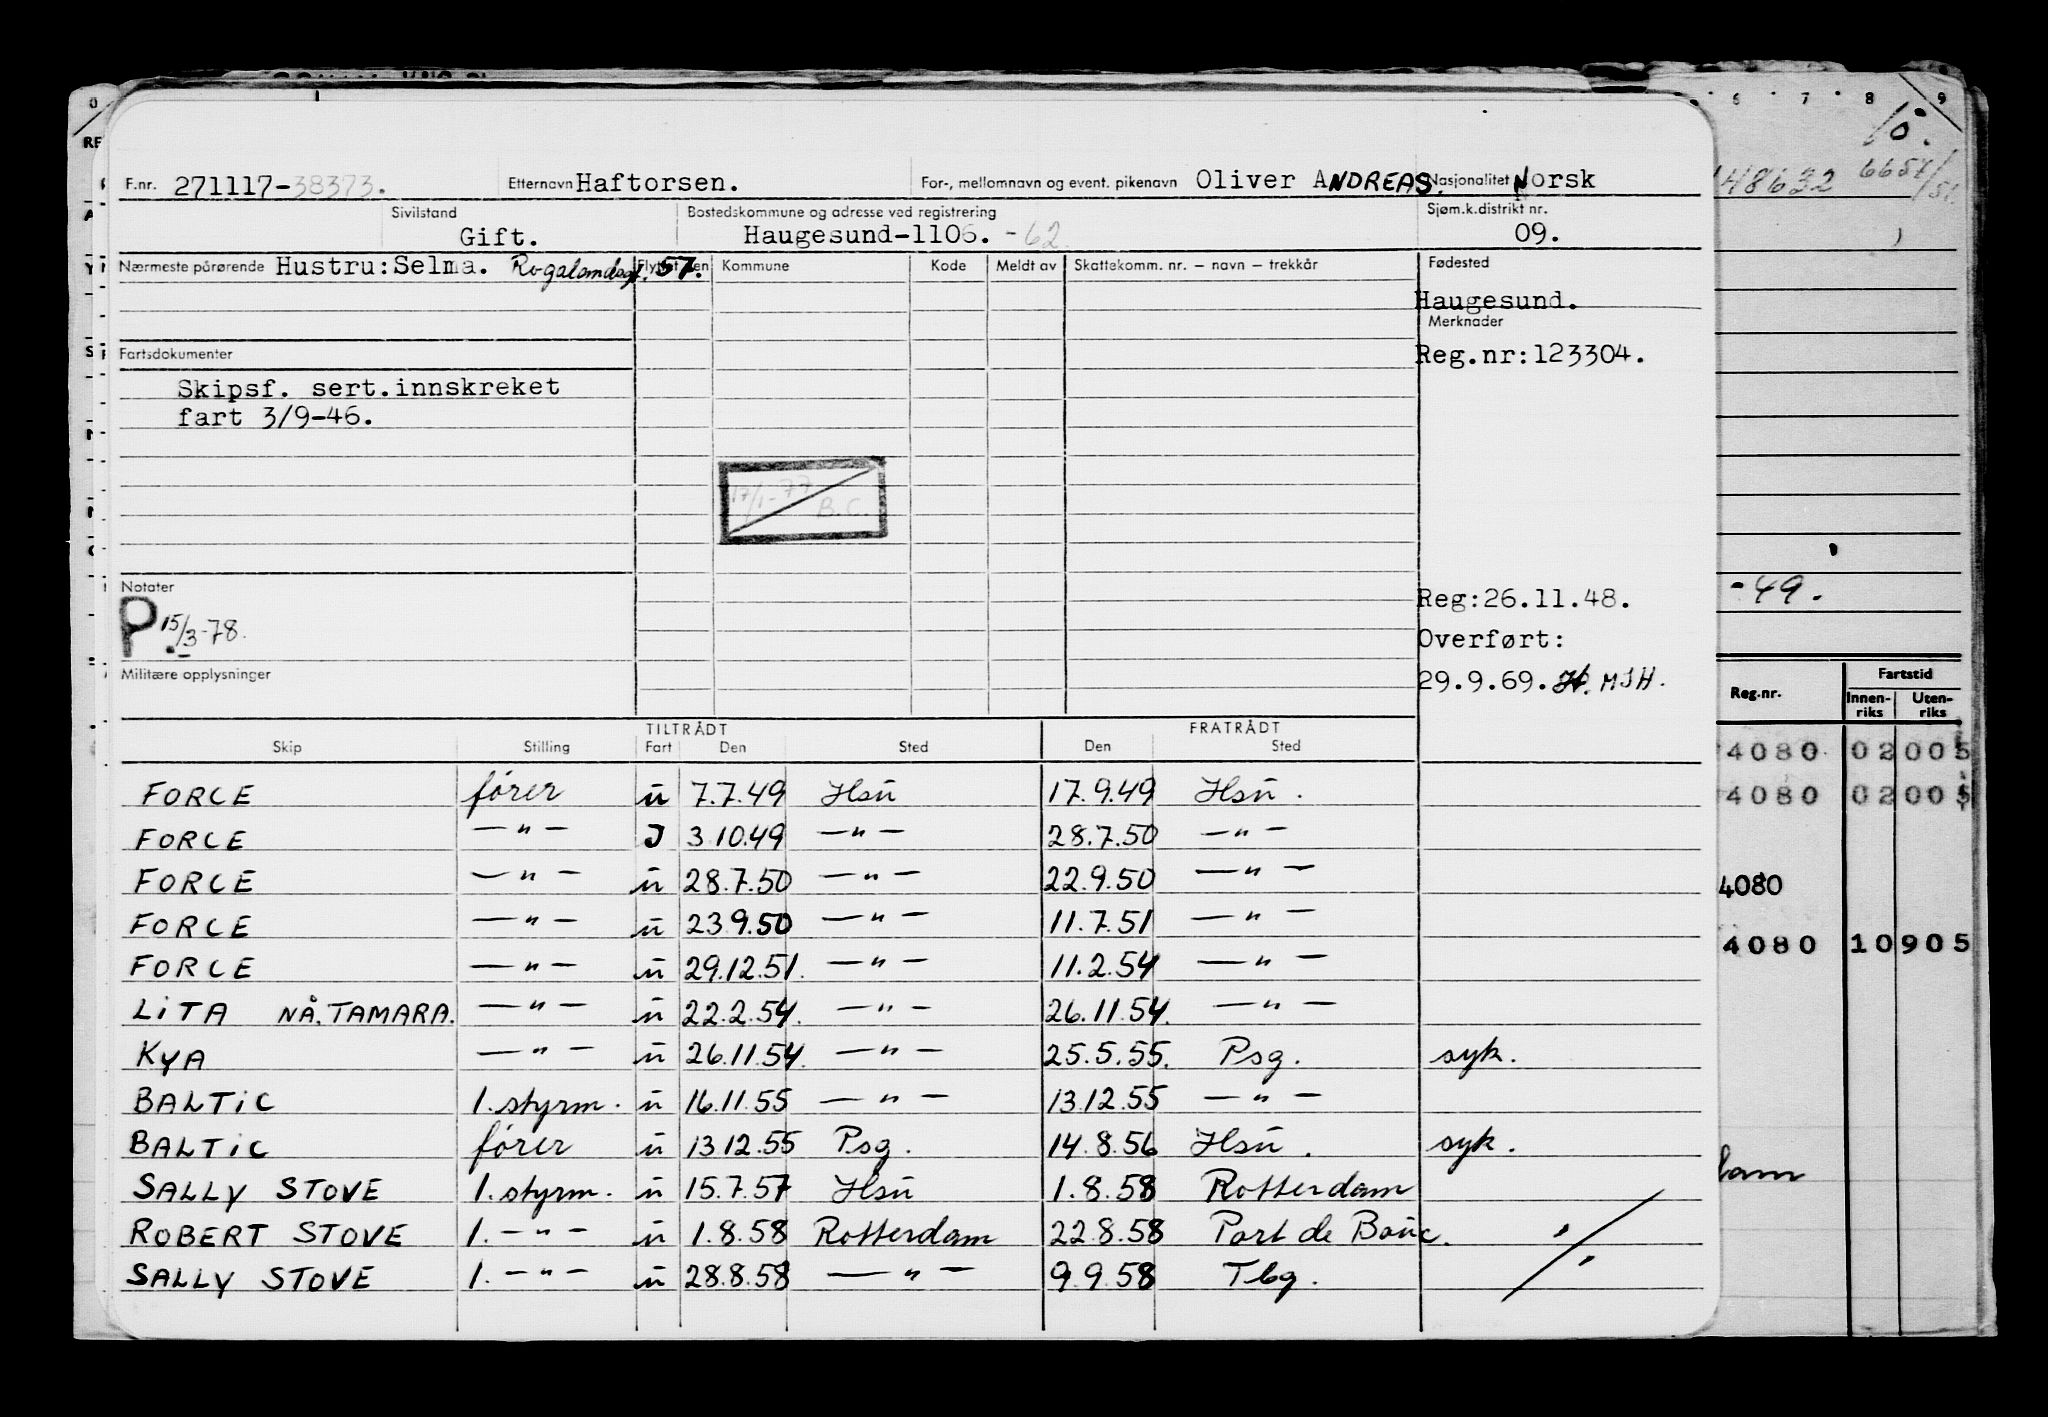 F.nr. 271117-38373. Etternavn Haftorsen. For-, mellomnavn og event. pikenavn Oliver ANDREAS. Nasjonalitet Norsk
Sivilstand Bostedskommune og adresse ved registrering Sjøm.k.distrikt nr.
Gift. Haugesund-1106. -62. 09.
Nærmeste pårørende Hustru:Selma. Rogalandsgt. 57. Flyttet den Kommune Kode Meldt av Skattekomm. nr. – navn – trekkår Fødested
Haugesund.
Merknader
Fartsdokumenter Reg.nr:123304.
Skipsf. sert.innskreket
fart 3/9-46.
17/1-77
B.C.
Notater Reg:26.11.48.
P. 15/3-78. Overført:
Militære opplysninger 29.9.69. MSH.
TILTRÅDT FRATRÅDT
Skip Stilling Fart Den Sted Den Sted
FORCE fører u 7.7.49 Hsu 17.9.49 Hsu.
FORCE —"— I 3.10.49 —"— 28.7.50 —"—
FORCE —"— u 28.7.50 —"— 22.9.50 —"—
FORCE —"— u 23.9.50 —"— 11.7.51 —"—
FORCE —"— u 29.12.51. —"— 11.2.54 —"—
LITA NÅ. TAMARA. —"— u 22.2.54. —"— 26.11.54. —"—
KYA —"— u 26.11.54. —"— 25.5.55. Psg. syk.
BALTIC 1.styrm. u 16.11.55 —"— 13.12.55 —"—
BALTIC fører u 13.12.55 Psg. 14.8.56 Hsu. syk.
SALLY STOVE 1.styrm. u 15.7.57 Hsu 1.8.58 Rotterdam
ROBERT STOVE 1.—"— u 1.8.58 Rotterdam 22.8.58 Port de Bouc.
SALLY STOVE 1.—"— u 28.8.58 —"— 9.9.58 Tbg.
6 7 8 9
10.
148632 6657/51.
-49.
Reg.nr. Fartstid
Innen-riks Uten-riks
4080 02 005
4080 02 005
4080
4080 10 905
dam